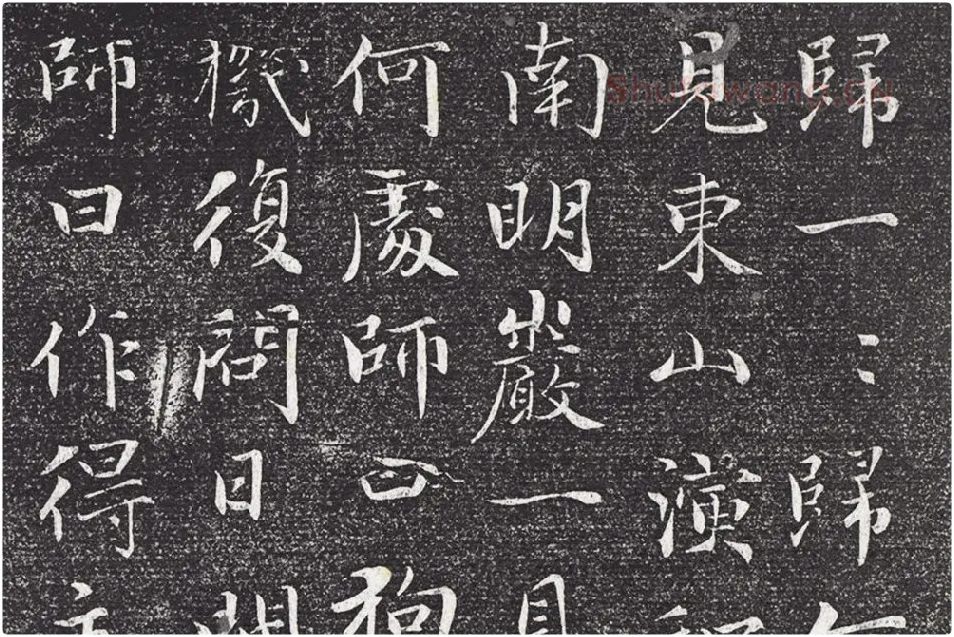 歸一〻歸
見東山演
南明巖一見
何處師曰狗
機復問曰
師曰作得
Shufawang.cn